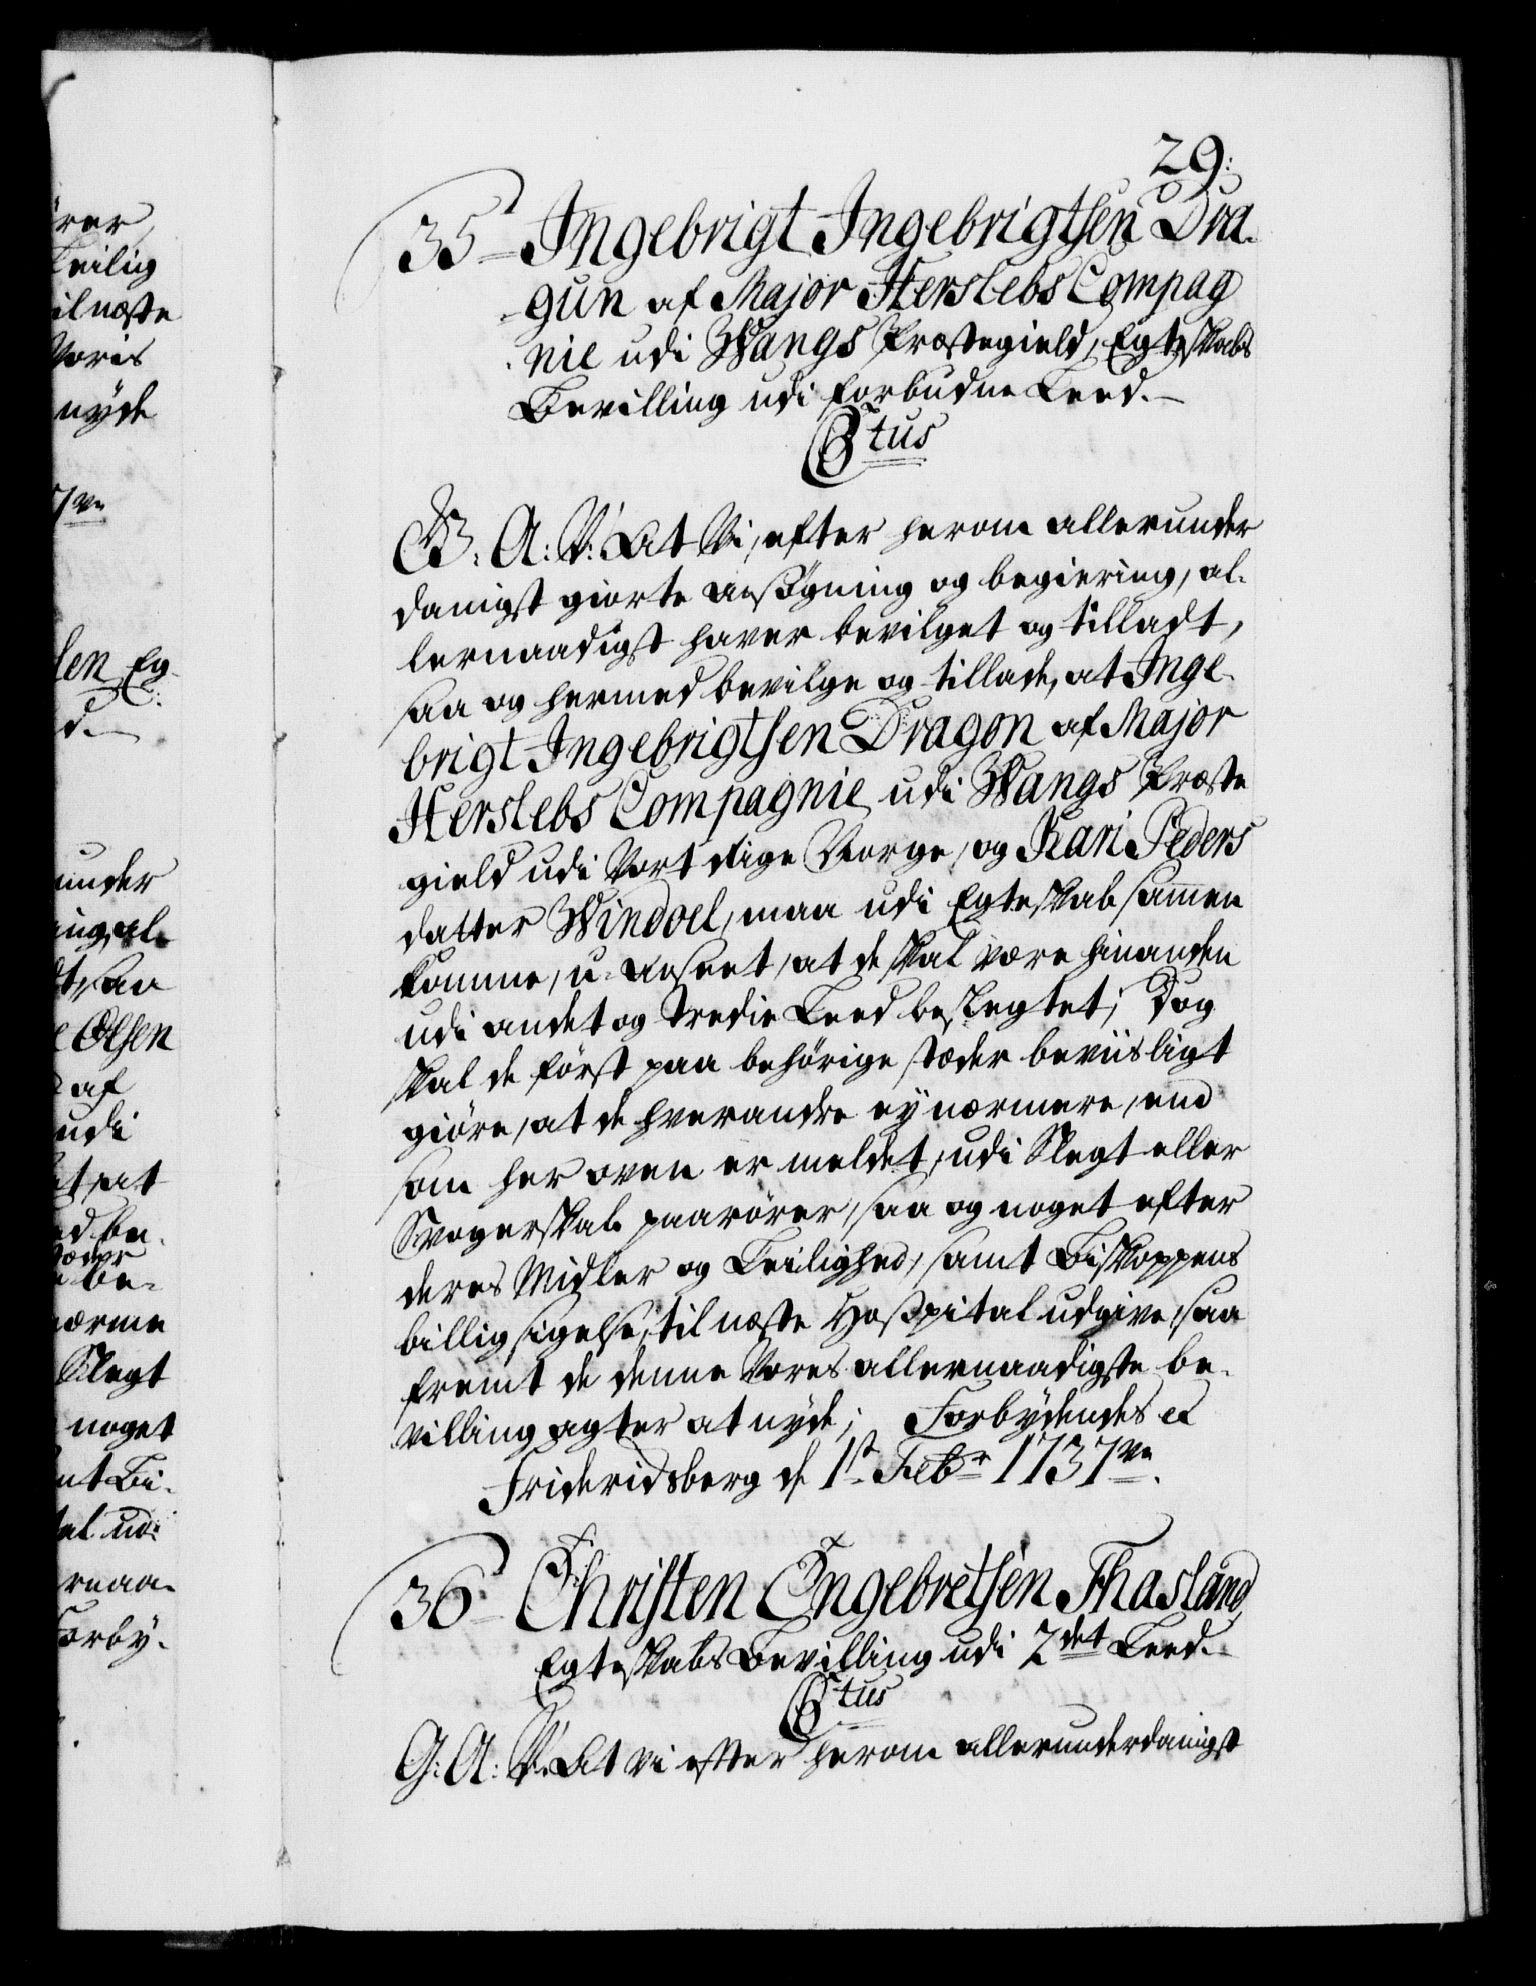 29:
35 Ingebrigt Ingebrigtsen Dra-
gun af Major Herslebs Compag
nie udi Wangs Præstegield, Egteskabs
Bevilling udi forbudne Leed.
Ctus
G. A: V: At Vi, efter herom allerunder
danigst giorte ansøgning og begiering, al-
lernaadigst haver bevilget og tilladt,
saa og hermed bevilge og tillade, at Inge-
brigt Ingebrigtsen Dragon af Major
Herslebs Compagnie udi Wangs Præste
gield udi Vort Rige Norge, og Kari Peders
datter Windoel, maa udi Egteskab sammen
komme, u-anseet, at de skal være hinanden
udi andet og tredie Leed beslegtet; Dog
skal de først paa behörige stæder beviisligt
giöre, at de hverandre ey nærmere, end
som her oven er meldet, udi Slegt eller
Svogerskab paarörer, saa og noget efter
deres Midler og Leilighed, samt Biskoppens
billigsigelse, til næste Hospital udgive, saa
fremt de denne Vores allernaadigste be-
villing agter at nyde; Forbydendes et
Frideridsberg d 1st Febr 1737ve.
36 Christen Engebretsen Thasland
Egteskabs Bevilling udi 2det Leed.
Ctus
G: A: V: At vi efter herom allerunderdanigst